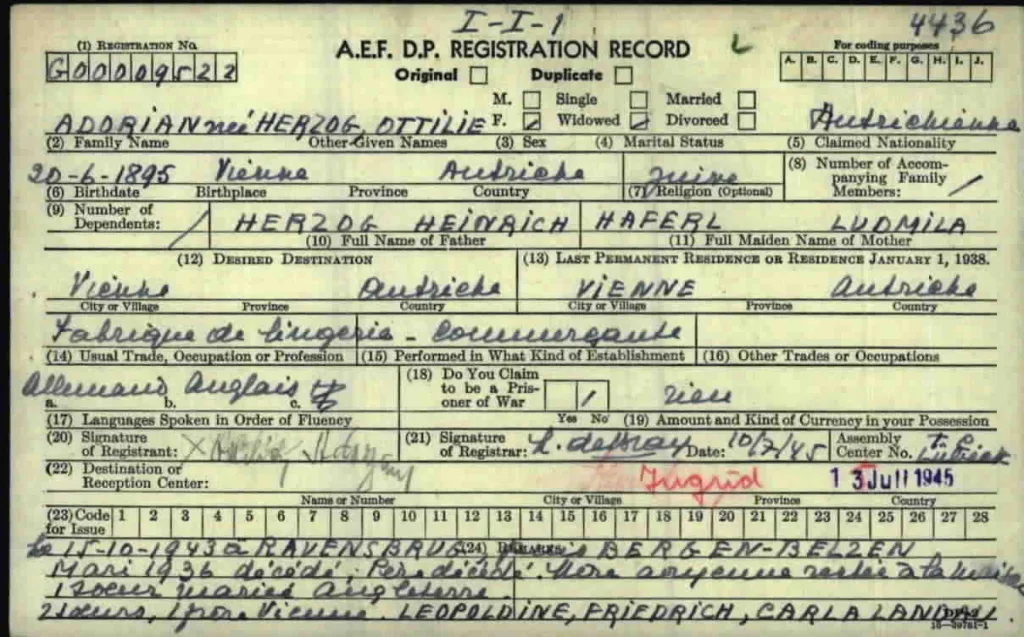 I-I-1 4436
(1) REGISTRATION NO. A.E.F. D.P. REGISTRATION RECORD For coding purposes
G00009522 Original Duplicate A. B. C. D. E. F. G. H. I. J.
M. Single Married
ADORIAN née HERZOG OTTILIE F. Widowed Divorced Autrichienne
(2) Family Name Other Given Names (3) Sex (4) Marital Status (5) Claimed Nationality
20-6-1895 Vienne Autriche Juive (8) Number of Accompanying Family Members: /
(6) Birthdate Birthplace Province Country (7) Religion (Optional)
(9) Number of Dependents: / HERZOG HEINRICH HAFERL LUDMILA
(10) Full Name of Father (11) Full Maiden Name of Mother
(12) DESIRED DESTINATION (13) LAST PERMANENT RESIDENCE OR RESIDENCE JANUARY 1, 1938.
Vienne Autriche VIENNE Autriche
City or Village Province Country City or Village Province Country
Fabrique de lingerie - Commerçante
(14) Usual Trade, Occupation or Profession (15) Performed in What Kind of Establishment (16) Other Trades or Occupations
Allemand Anglais (18) Do You Claim to be a Prisoner of War / rien
a. b. c.
(17) Languages Spoken in Order of Fluency Yes No (19) Amount and Kind of Currency in your Possession
(20) Signature of Registrant: X (21) Signature of Registrar: Date: 10/7/45 Assembly Center No.
(22) Destination or Reception Center: Ingrid 13 Juli 1945
Name or Number City or Village Province Country
(23) Code for Issue 1 2 3 4 5 6 7 8 9 10 11 12 13 14 15 16 17 18 19 20 21 22 23 24 25 26 27 28
(24) REMARKS
le 15-10-1943 à RAVENSBRUG BERGEN-BELZEN
Mari 1936 décédé. Père décédé. Mère aryenne restée à la maison
1 soeur mariée Angleterre.
2 soeurs, 1 frère Vienne. LEOPOLDINE, FRIEDRICH, CARLA